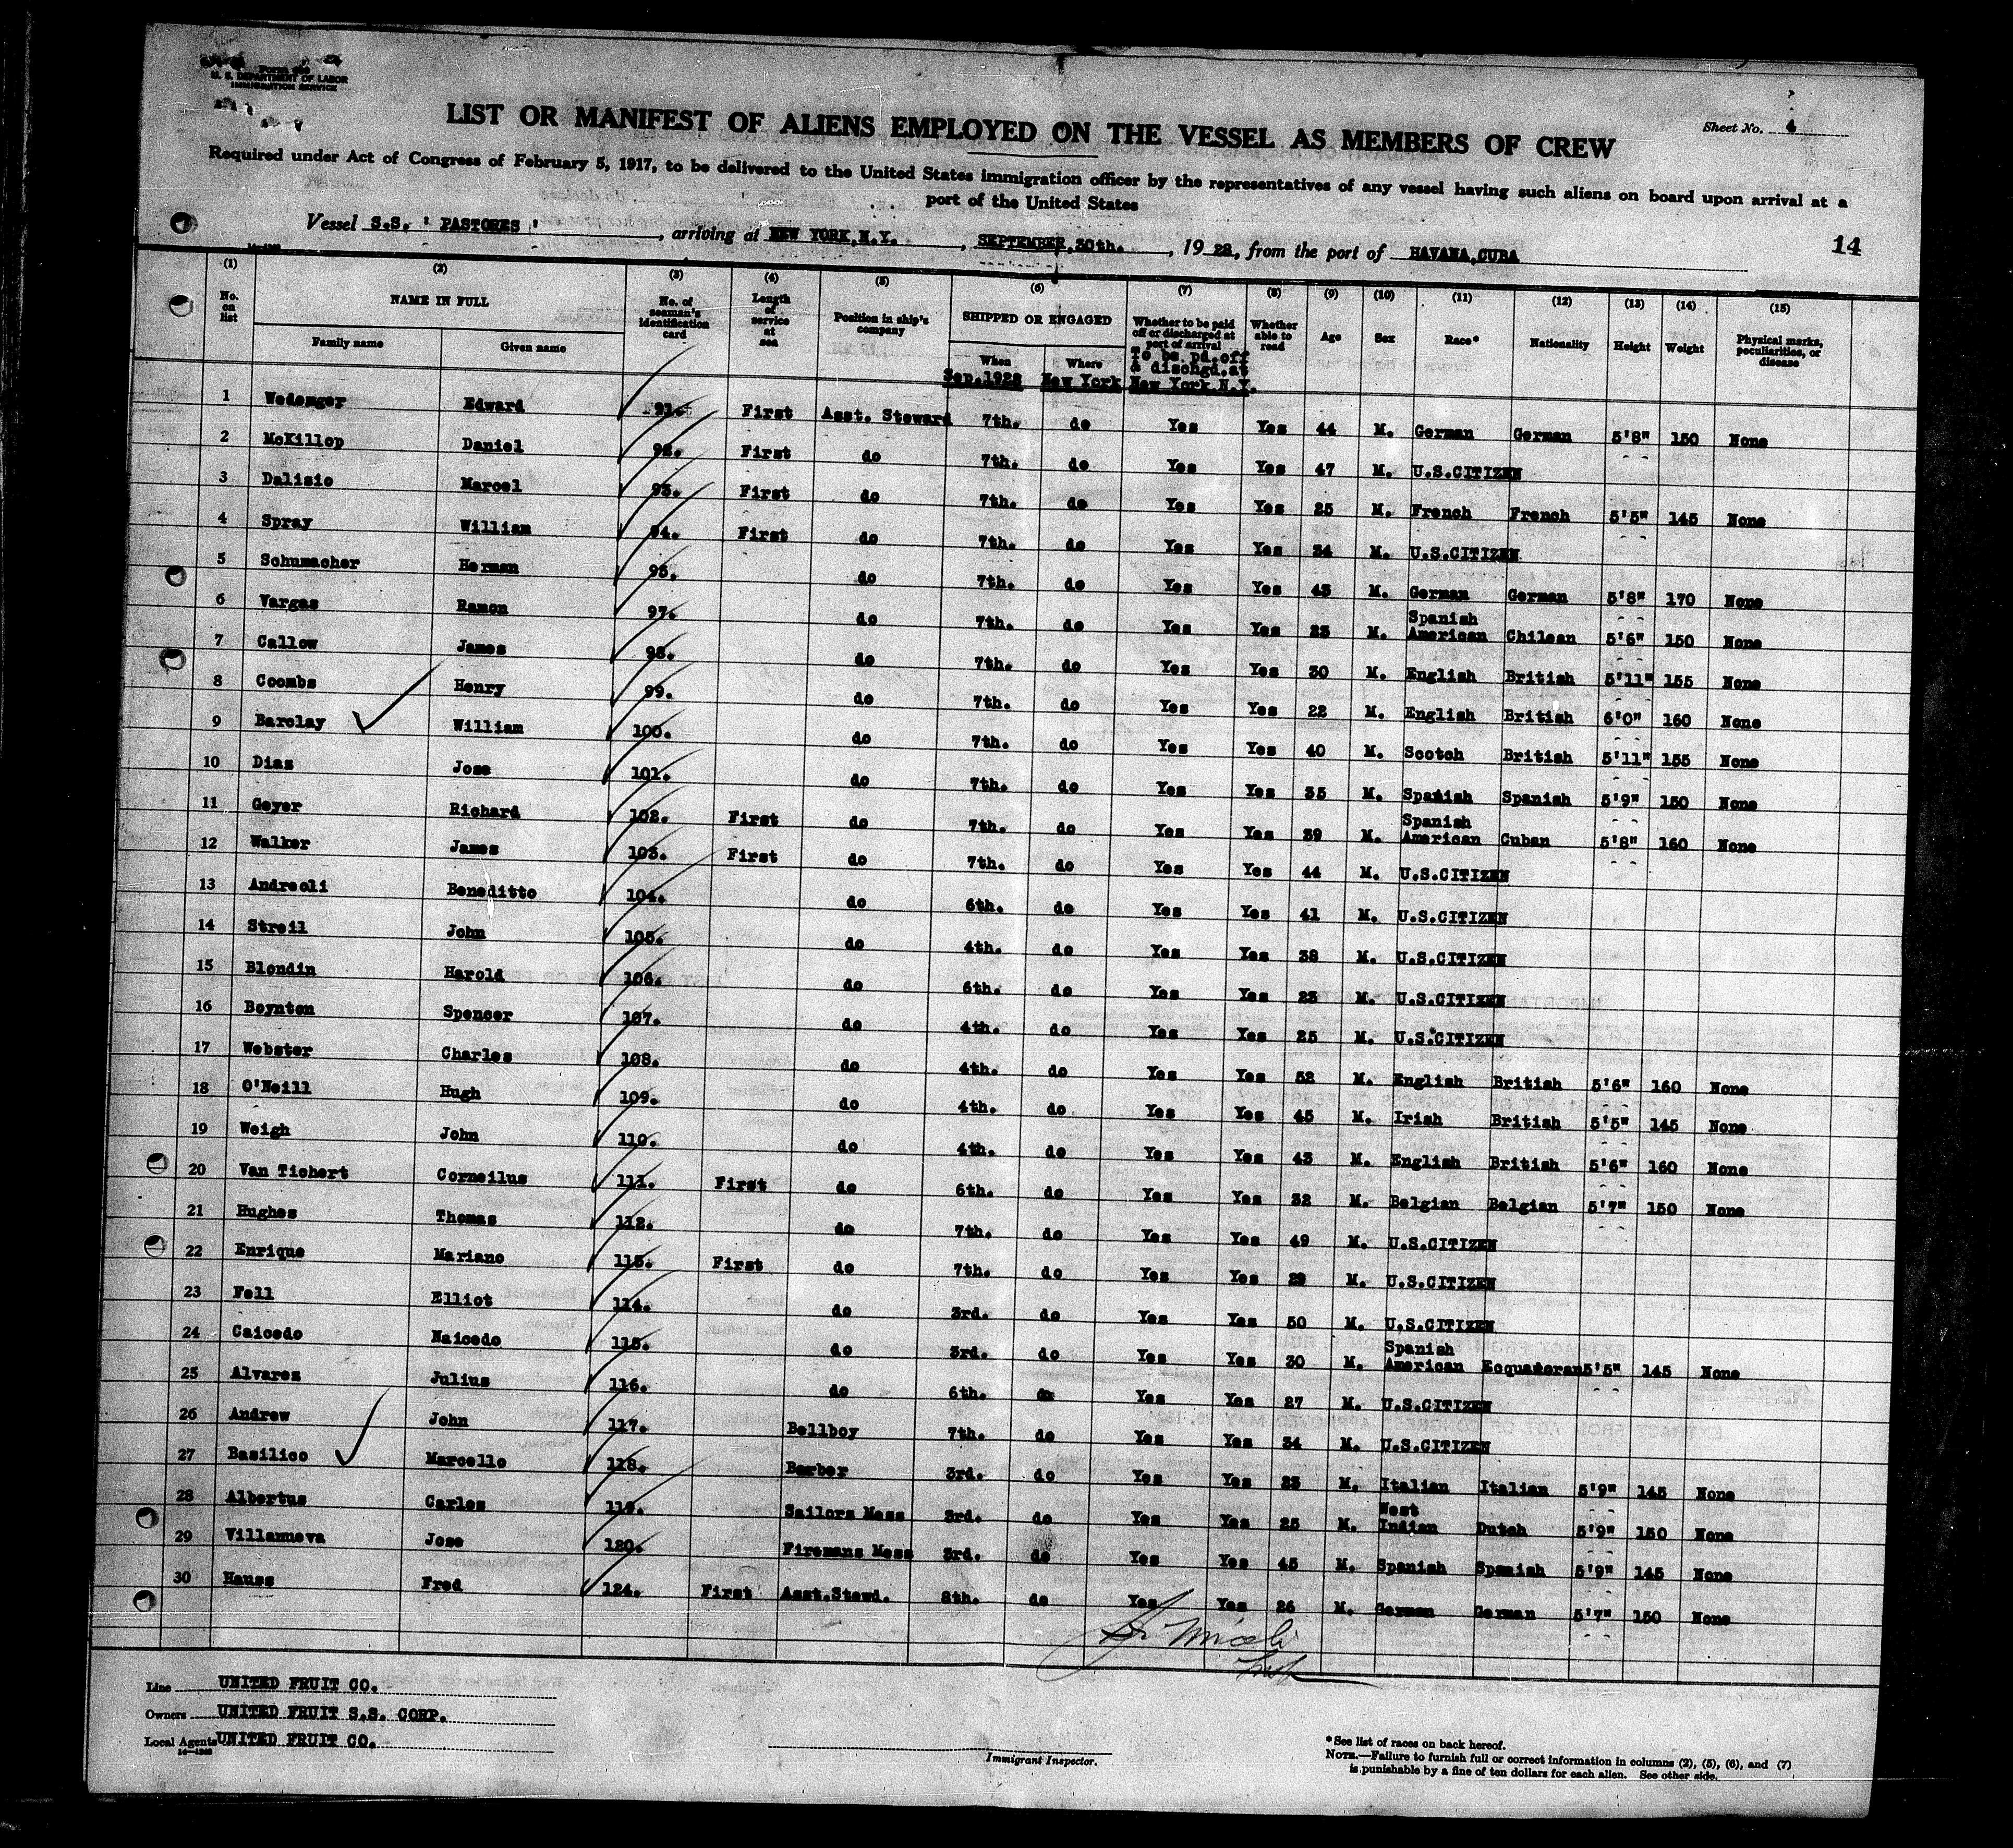 U. S. DEPARTMENT OF LABOR
IMMIGRATION SERVICE
Sheet No. 4
LIST OR MANIFEST OF ALIENS EMPLOYED ON THE VESSEL AS MEMBERS OF CREW
Required under Act of Congress of February 5, 1917, to be delivered to the United States immigration officer by the representatives of any vessel having such aliens on board upon arrival at a
port of the United States
Vessel S.S. ' PASTORES ' , arriving at NEW YORK,N.Y. , SEPTEMBER,30th. , 1928, from the port of HAVANA,CUBA
14
(1) (2) (3) (4) (5) (6) (7) (8) (9) (10) (11) (12) (13) (14) (15)
No. on list NAME IN FULL Family name Given name No. of seaman's identification card Length of service at sea Position in ship's company SHIPPED OR ENGAGED When Where Whether to be paid off or discharged at port of arrival Whether able to read Age Sex Race* Nationality Height Weight Physical marks, peculiarities, or disease
Sep.1928 New York To be pd.off & dischgd.at New York.N.Y.
1 Wedemger Edward 91. First Asst. Steward 7th. do Yes Yes 44 M. German German 5'8" 150 None
2 McKillop Daniel 92. First do 7th. do Yes Yes 47 M. U.S.CITIZEN
3 Dalisio Marcel 93. First do 7th. do Yes Yes 25 M. French French 5'5" 145 None
4 Spray William 94. First do 7th. do Yes Yes 34 M. U.S.CITIZEN
5 Schumacher Herman 95. do 7th. do Yes Yes 43 M. German German 5'8" 170 None
6 Vargas Ramon 97. do 7th. do Yes Yes 23 M. Spanish American Chilean 5'6" 150 None
7 Callow James 98. do 7th. do Yes Yes 30 M. English British 5'11" 155 None
8 Coombs Henry 99. do 7th. do Yes Yes 22 M. English British 6'0" 160 None
9 Barclay William 100. do 7th. do Yes Yes 40 M. Scotch British 5'11" 155 None
10 Dias Jose 101. do 7th. do Yes Yes 35 M. Spanish Spanish 5'9" 150 None
11 Geyer Richard 102. First do 7th. do Yes Yes 39 M. Spanish American Cuban 5'8" 160 None
12 Walker James 103. First do 7th. do Yes Yes 44 M. U.S.CITIZEN
13 Andreoli Beneditto 104. do 6th. do Yes Yes 41 M. U.S.CITIZEN
14 Streil John 105. do 4th. do Yes Yes 38 M. U.S.CITIZEN
15 Blondin Harold 106. do 6th. do Yes Yes 23 M. U.S.CITIZEN
16 Boynton Spencer 107. do 4th. do Yes Yes 25 M. U.S.CITIZEN
17 Webster Charles 108. do 4th. do Yes Yes 52 M. English British 5'6" 160 None
18 O'Neill Hugh 109. do 4th. do Yes Yes 45 M. Irish British 5'5" 145 None
19 Weigh John 110. do 4th. do Yes Yes 43 M. English British 5'6" 160 None
20 Van Tichert Corneilus 111. First do 6th. do Yes Yes 32 M. Belgian Belgian 5'7" 150 None
21 Hughes Thomas 112. do 7th. do Yes Yes 49 M. U.S.CITIZEN
22 Enrique Mariano 113. First do 7th. do Yes Yes 29 M. U.S.CITIZEN
23 Fell Elliot 114. do 3rd. do Yes Yes 50 M. U.S.CITIZEN
24 Caicedo Naicedo 115. do 3rd. do Yes Yes 30 M. Spanish American Ecquatoran 5'5" 145 None
25 Alvares Julius 116. do 6th. do Yes Yes 27 M. U.S.CITIZEN
26 Andrew John 117. Bellboy 7th. do Yes Yes 34 M. U.S.CITIZEN
27 Basilico Marcello 118. Barber 3rd. do Yes Yes 23 M. Italian Italian 5'9" 145 None
28 Albertus Carlos 119. Sailors Mess 3rd. do Yes Yes 25 M. West Indian Dutch 5'9" 150 None
29 Villanueva Jose 120. Firemans Mess 3rd. do Yes Yes 45 M. Spanish Spanish 5'9" 145 None
30 Hauss Fred 124. First Asst.Stewd. 8th. do Yes Yes 26 M. German German 5'7" 150 None
Line UNITED FRUIT CO.
Owners UNITED FRUIT S.S. CORP.
Local Agents UNITED FRUIT CO.
Immigrant Inspector.
* See list of races on back hereof.
NOTE.—Failure to furnish full or correct information in columns (2), (5), (6), and (7)
is punishable by a fine of ten dollars for each alien. See other side.